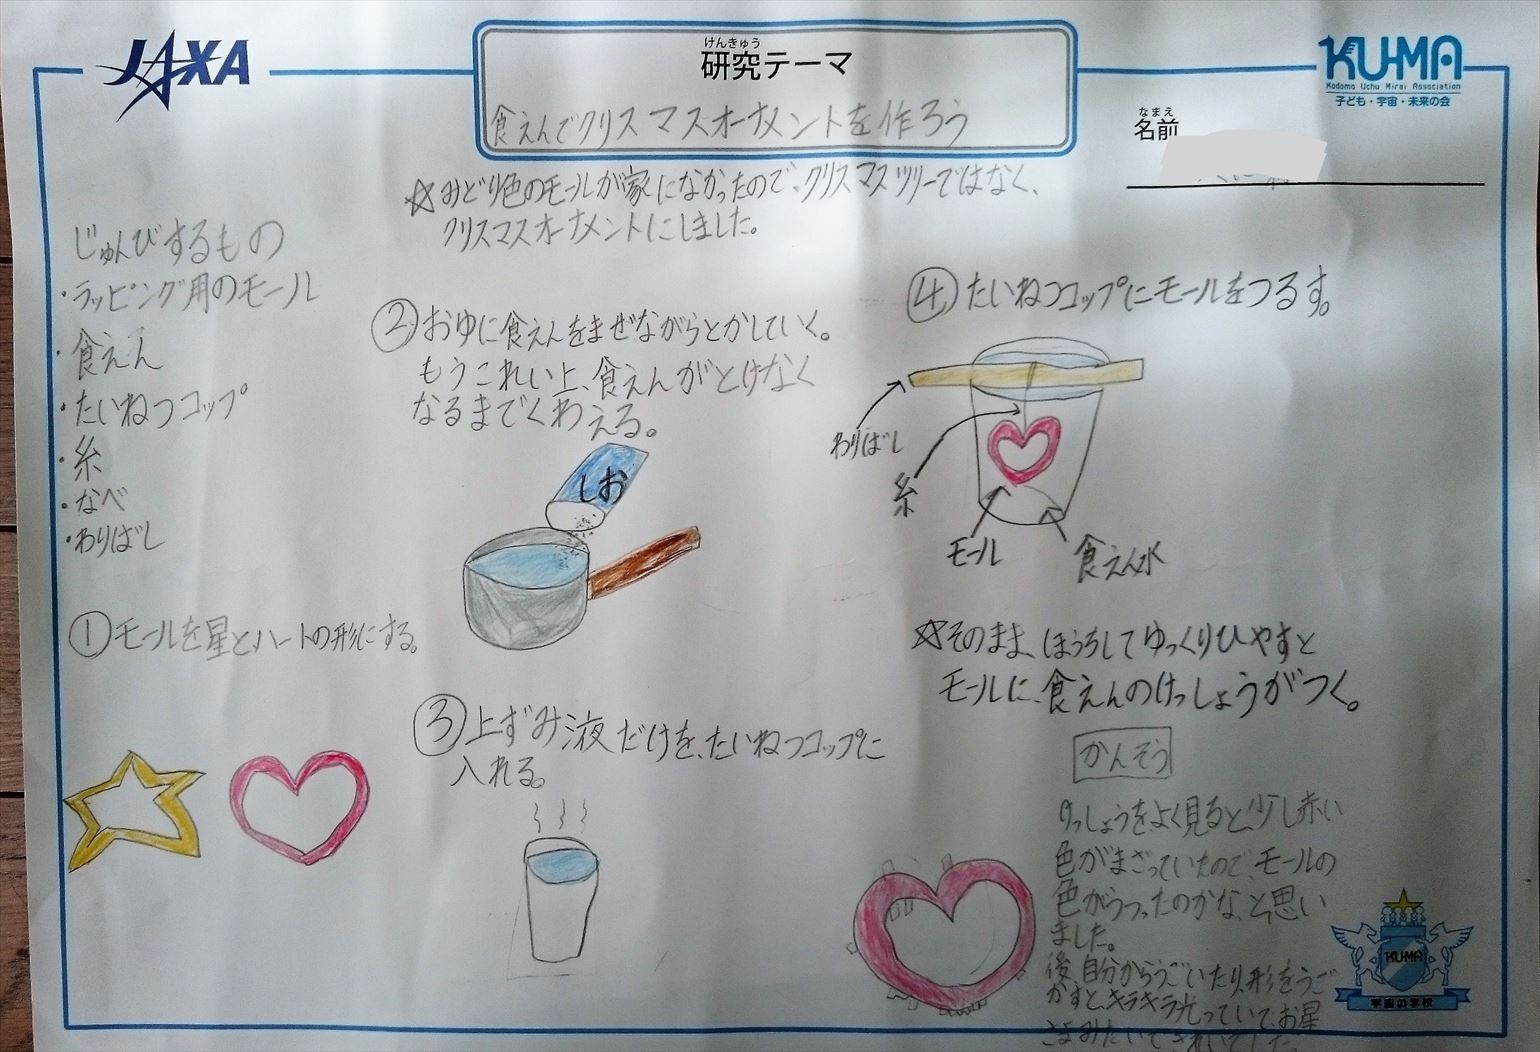 JAXA
けんきゅう
研究テーマ
食えんでクリスマスオーナメントを作ろう
KU-MA
Kodomo Uchu Mirai Association
子ども・宇宙・未来の会
なまえ
名前
☆みどり色のモールが家になかったので、クリスマスツリーではなく、
クリスマスオーナメントにしました。
じゅんびするもの
・ラッピング用のモール
・食えん
・たいねつコップ
・糸
・なべ
・わりばし
①モールを星と、ハートの形にする。
②おゆに食えんをまぜながらとかしていく。
もうこれい上、食えんがとけなく
なるまでくわえる。
しお
③上ずみ液だけを、たいねつコップに
入れる。
④たいねつコップにモールをつるす。
わりばし
糸
モール
食えん水
☆そのまま、ほうちしてゆっくりひやすと
モールに、食えんのけっしょうがつく。
かんそう
けっしょうをよく見ると、少し赤い
色がまざっていたので、モールの
色がうつったのかな、と思い
ました。
後、自分からうごいたり、形をうご
かすと、キラキラ光っていて、お星
さまみたいできれいでした。
KU-MA
宇宙の学校